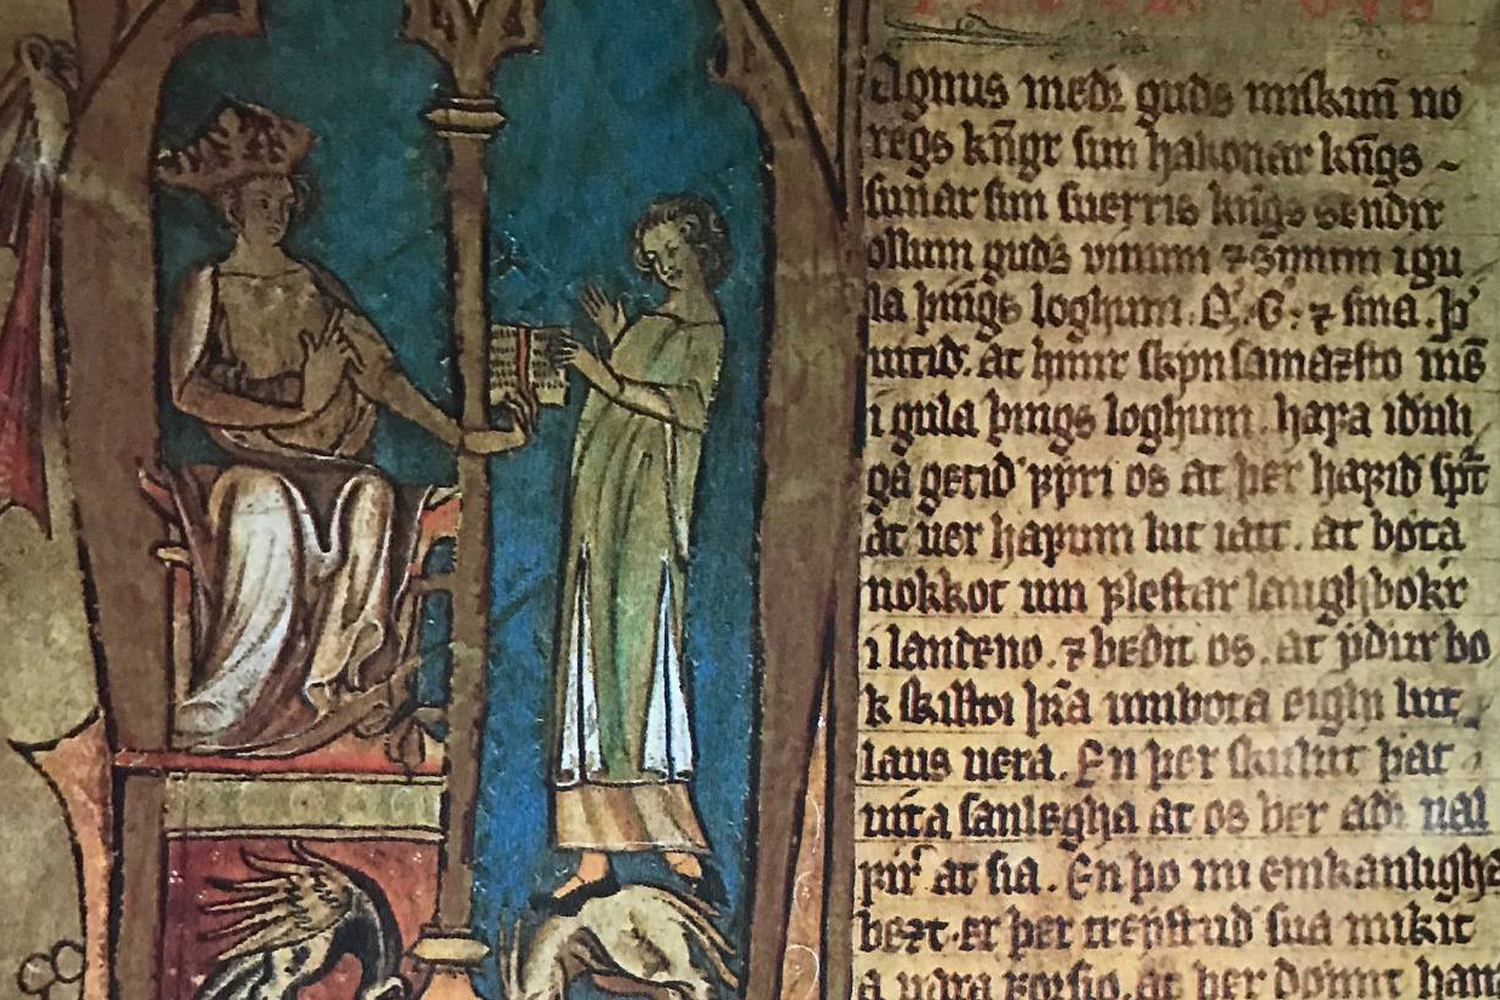 agnus medꝛ guds miskun̄ no
regs kn̄gr sun hakonar kn̄gs
sunar sun suerris kn̄gs sendir
ollum guds vinum ⁊ sinum i gu
la þin̄gs loghum. Q. G. ⁊ sina.
uitið. at hinir skynsamaꝛsto mē
i gula þings loghum. hafa iðuli
ga getið fyri os at þer hafið spt
at uer hafum lut iatt. at bota
nokkot um flestar laughbokr
i landeno. ⁊ beðit os. at yður bo
k skilldi umbota eighi lut
laus uera. En þer skulut þat
uita sanlegha at os ber aði
at sia. En þo nu einkanligha
bezt. er þer treystuð sua mikit
a vara forsio. at þer